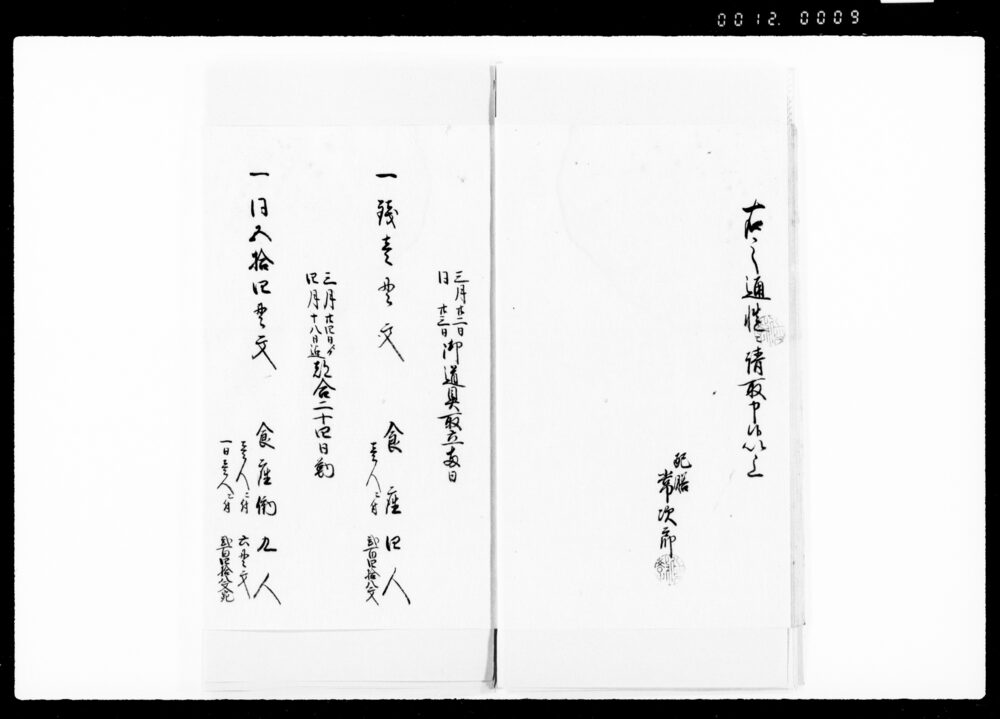 0012. 0009
右之通慥ニ請取申候以上
配膳
常次郎
三月廿二日
同 廿三日 御道具取立両日
一 銭壱貫文 食座四人
壱人ニ付 弐百四拾八文
三月廿四日ゟ
四月十八日迄 都合二十四日勤
一 同五拾四貫文 食座働 九人
壱人ニ付 六貫文
一日壱人ニ付 弐百四拾八文宛